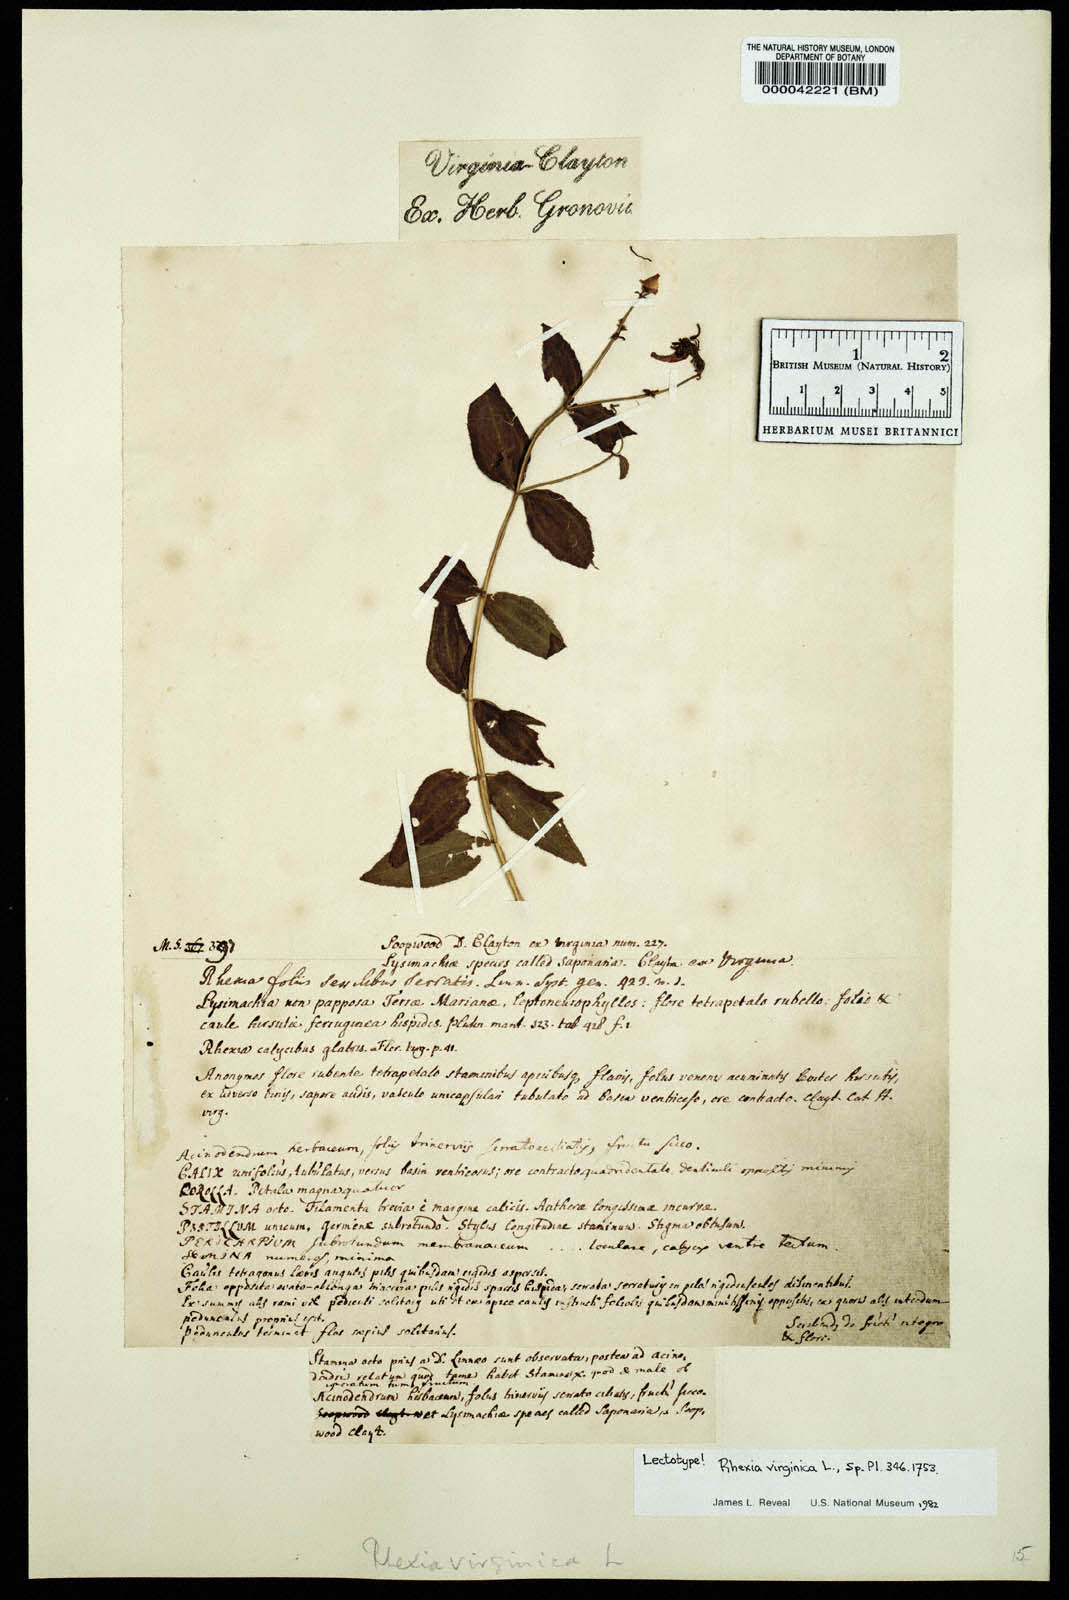 THE NATURAL HISTORY MUSEUM, LONDON
DEPARTMENT OF BOTANY
000042221 (BM)
Virginia Clayton
Ex. Herb. Gronovii
1 2
BRITISH MUSEUM (NATURAL HISTORY)
1 2 3 4 5
HERBARIUM MUSEI BRITANNICI
Soopwood D. Clayton ex Virginia num. 227.
Lysimachiæ species called Saponaria. Clayton ex Virginia.
Rhexia foliis sessilibus serratis. Linn. Syst. gen. 423. n. 1.
Lysimachia non papposa Terræ Marianæ, leptoneurophyllos: flore tetrapetalo rubello: folio &
caule hirsutie ferruginea hispidis. Pluken. mant. 123. tab 428 f. 1
Rhexia calycibus glabris. Flor. virg. p. 41.
Anonymos flore rubente tetrapetalo staminibus apicibusq, flavis, foliis venosis acuminatis hirsutis,
ex adverso binis, sapore acidis, vasculo unicapsulari tubulato ad basin ventricoso, ore contracto. Clayt. Cat.
virg.
Acinodendrum herbaceum, foliis trinerviis serratociliatis, fructu sicco.
CALIX unifolius, tubulatus, versus basin ventricosus; ore contracto quadridentato, denticuli oppositis minimis
COROLLA. Petala magna quatuor
STAMINA octo. Filamenta brevia è margine calicis. Antheræ longissimæ incurvæ.
PISTILLUM unicum, germine subrotundo. Stylus longitudine staminum. Stigma obtusum.
PERICARPIUM subrotundum membranaceum .... loculare, calycis ventre tectum.
SEMINA numerosa, minima
Caulis tetragonus lævis angulis pilis quibusdam rigidis aspersis.
Folia opposita ovato-oblonga trinervia pilis rigidis sparsis hispida; serrata serraturis in pilos rigidiusculos desinentibus.
Ex summis alis rami vel pediculi solitarii uti et ex apice caulis instructi foliolis quibusdam minutissimis oppositis, ex quorum alis interdum
pedunculus proprius exit.
Pedunculos terminat flos sæpius solitarius.
& flore.
Stamina octo prius a D. Linnæo sunt observata, postea ad acino,
dendri relatum quod tamen habet Stamina x.
Acinodendrum herbaceum, foliis trinerviis serrato ciliatis, fructu sicco.
Soopwood Clayt. Lysimachiæ species called Saponaria, & Soop,
wood Clayt.
Lectotype! Rhexia virginica L., Sp. Pl. 346. 1753.
James L. Reveal U.S. National Museum 1982
Rhexia virginica L
15